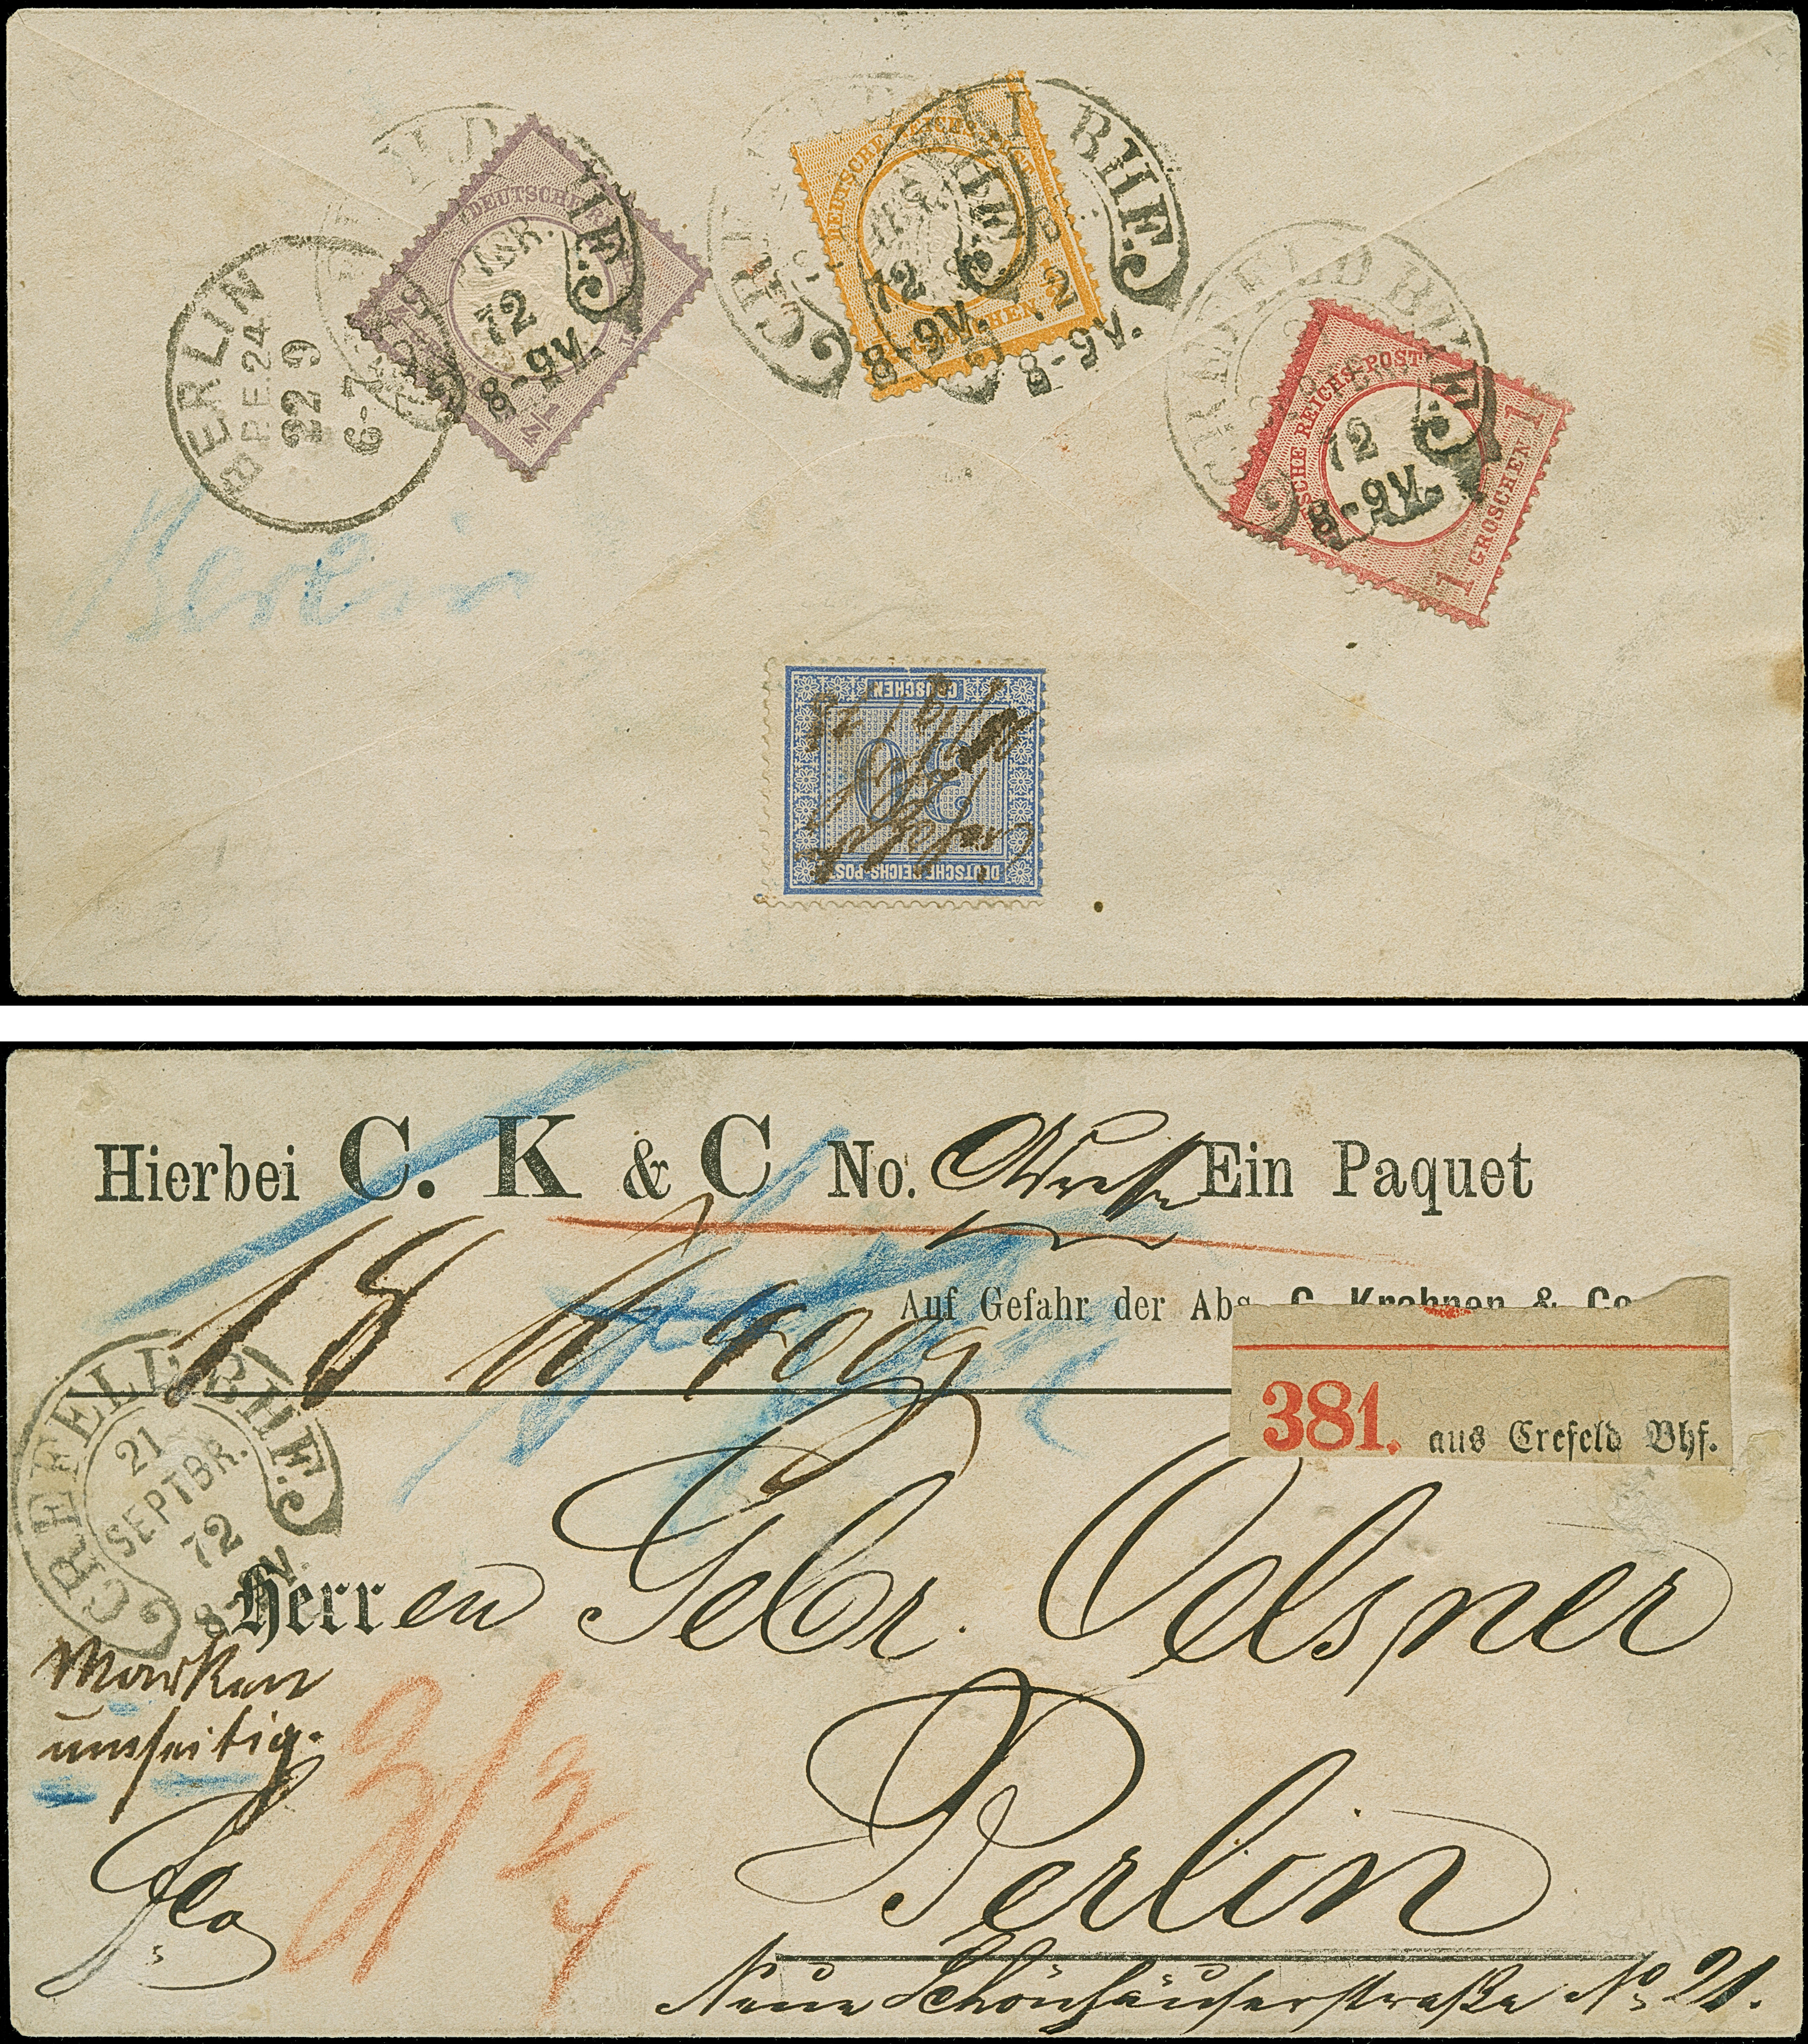 BERLIN
P.E.24
22 9
6-7
DEUTSCHE R
72
8-9V.
1/4
CREFELD BHF.
DEUTSCHE REICHS-POST
72
8-9V.
GROSCHEN
BHF.
8-9V.
CREFELD BHF.
SCHE REICHS-POST
72
8-9V.
1 GROSCHEN 1
Berlin
GROSCHEN
30
DEUTSCHE REICHS-POST
Hierbei C. K & C No. Ein Paquet
18 400 g
Auf Gefahr der Abs. C. Krahnen & Co.
381. aus Crefeld Bhf.
CREFELD BHF.
21
SEPTBR.
72
8-9V.
Herren Gebr. Oelsner
Marken
umseitig.
Berlin
Neue Schönhäuserstraße No 21.